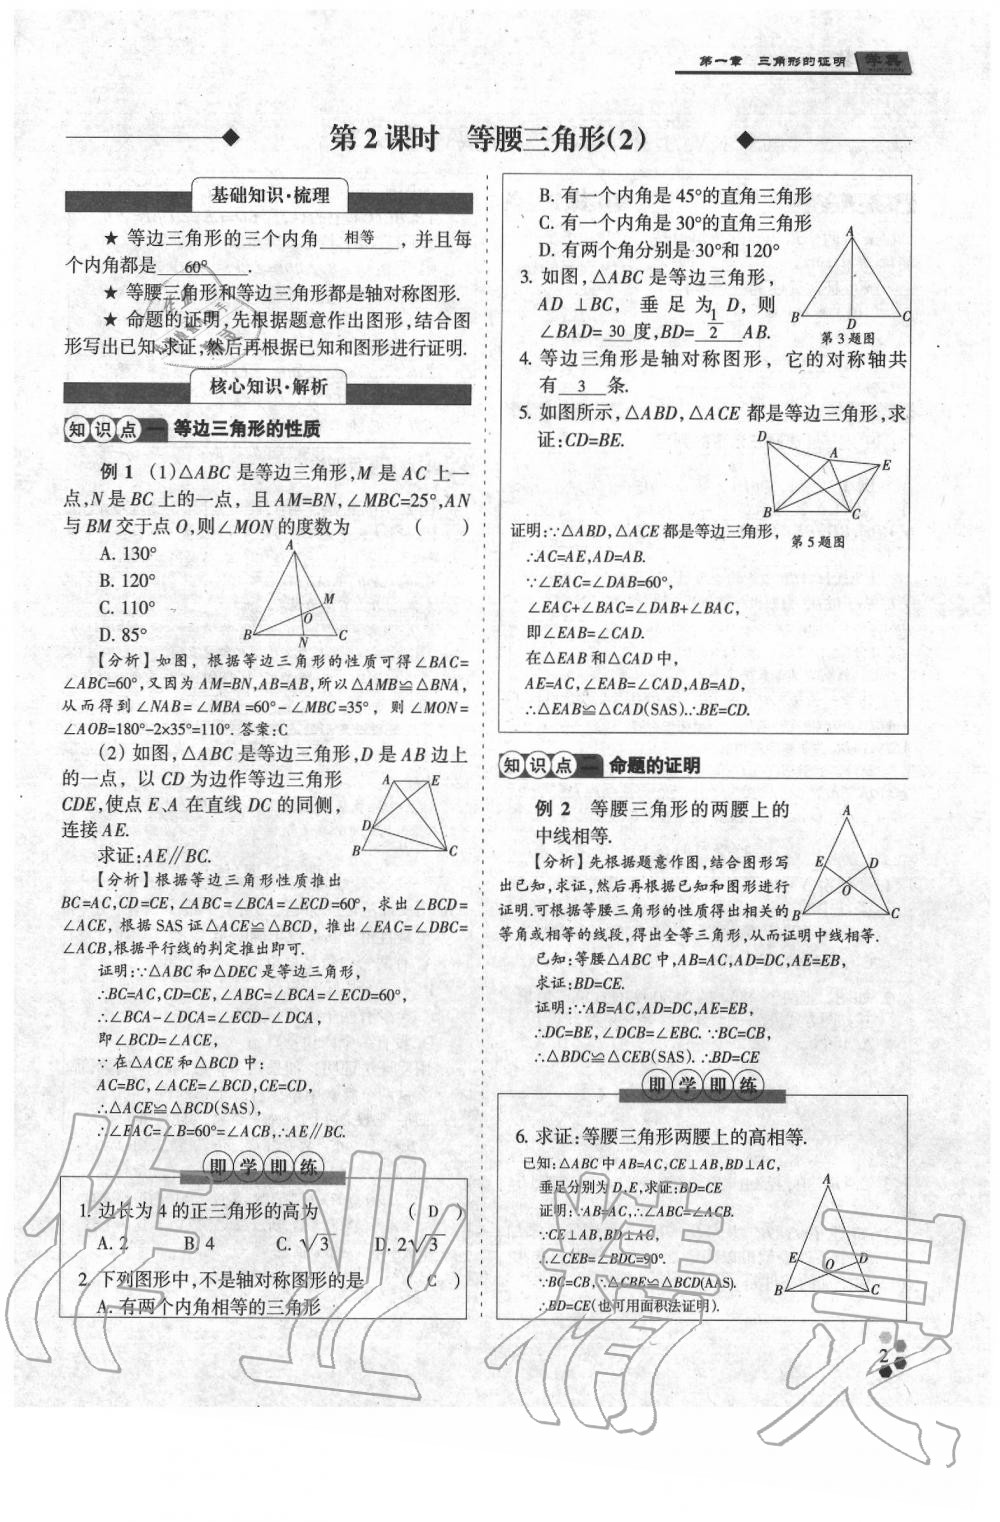 第一章　三角形的证明　学典
第2课时　等腰三角形(2)
基础知识·梳理
★ 等边三角形的三个内角 相等 ，并且每
个内角都是 60° .
★ 等腰三角形和等边三角形都是轴对称图形.
★ 命题的证明,先根据题意作出图形,结合图
形写出已知、求证,然后再根据已知和图形进行证明.
核心知识·解析
知识点一 等边三角形的性质
例1 (1)△ABC 是等边三角形,M 是 AC 上一
点,N 是 BC 上的一点，且 AM=BN,∠MBC=25°,AN
与 BM 交于点 O,则∠MON 的度数为 (　)
A. 130°
B. 120°
C. 110°
D. 85°
A
M
O
B
N
C
【分析】如图，根据等边三角形的性质可得∠BAC=
∠ABC=60°,又因为 AM=BN,AB=AB,所以△AMB≌△BNA,
从而得到∠NAB=∠MBA=60°-∠MBC=35°，则∠MON=
∠AOB=180°-2×35°=110°. 答案:C
(2) 如图,△ABC 是等边三角形,D 是 AB 边上
的一点，以 CD 为边作等边三角形
CDE,使点 E、A 在直线 DC 的同侧,
连接 AE.
求证:AE∥BC.
A
E
D
B
C
【分析】根据等边三角形性质推出
BC=AC,CD=CE,∠ABC=∠BCA=∠ECD=60°，求出∠BCD=
∠ACE，根据 SAS 证△ACE≌△BCD，推出∠EAC=∠DBC=
∠ACB,根据平行线的判定推出即可.
证明:∵△ABC 和△DEC 是等边三角形，
∴BC=AC,CD=CE,∠ABC=∠BCA=∠ECD=60°,
∴∠BCA-∠DCA=∠ECD-∠DCA，
即∠BCD=∠ACE,
∵在△ACE 和△BCD 中:
AC=BC,∠ACE=∠BCD,CE=CD,
∴△ACE≌△BCD(SAS)，
∴∠EAC=∠B=60°=∠ACB,∴AE∥BC.
即学即练
1. 边长为 4 的正三角形的高为 ( D )
A. 2　B. 4　C. √3　D. 2√3
2. 下列图形中,不是轴对称图形的是 ( C )
A. 有两个内角相等的三角形
B. 有一个内角是 45°的直角三角形
C. 有一个内角是 30°的直角三角形
D. 有两个角分别是 30°和 120°
3. 如图,△ABC 是等边三角形，
AD⊥BC，垂足为 D，则
∠BAD= 30 度,BD= 1/2 AB.
A
B
D
C
第3题图
4. 等边三角形是轴对称图形，它的对称轴共
有 3 条.
5. 如图所示,△ABD,△ACE 都是等边三角形,求
证:CD=BE.
D
A
E
B
C
第5题图
证明:∵△ABD,△ACE 都是等边三角形，
∴AC=AE,AD=AB.
∵∠EAC=∠DAB=60°,
∠EAC+∠BAC=∠DAB+∠BAC,
即∠EAB=∠CAD.
在△EAB 和△CAD 中，
AE=AC,∠EAB=∠CAD,AB=AD,
∴△EAB≌△CAD(SAS).∴BE=CD.
知识点二 命题的证明
例2　等腰三角形的两腰上的
中线相等.
【分析】先根据题意作图,结合图形写
出已知,求证,然后再根据已知和图形进行
证明.可根据等腰三角形的性质得出相关的
等角或相等的线段,得出全等三角形,从而证明中线相等.
A
E
D
O
B
C
已知:等腰△ABC 中,AB=AC,AD=DC,AE=EB,
求证:BD=CE.
证明:∵AB=AC,AD=DC,AE=EB,
∴DC=BE,∠DCB=∠EBC. ∵BC=CB,
∴△BDC≌△CEB(SAS). ∴BD=CE
即学即练
6. 求证:等腰三角形两腰上的高相等.
已知:△ABC 中 AB=AC,CE⊥AB,BD⊥AC,
垂足分别为 D,E,求证:BD=CE
证明:∵AB=AC,∴∠ABC=∠ACB.
∵CE⊥AB,BD⊥AC,
∴∠CEB=∠BDC=90°.
∵BC=CB,∴△CBE≌△BCD(AAS).
∴BD=CE(也可用面积法证明).
A
E
D
O
B
C
2
作业精灵